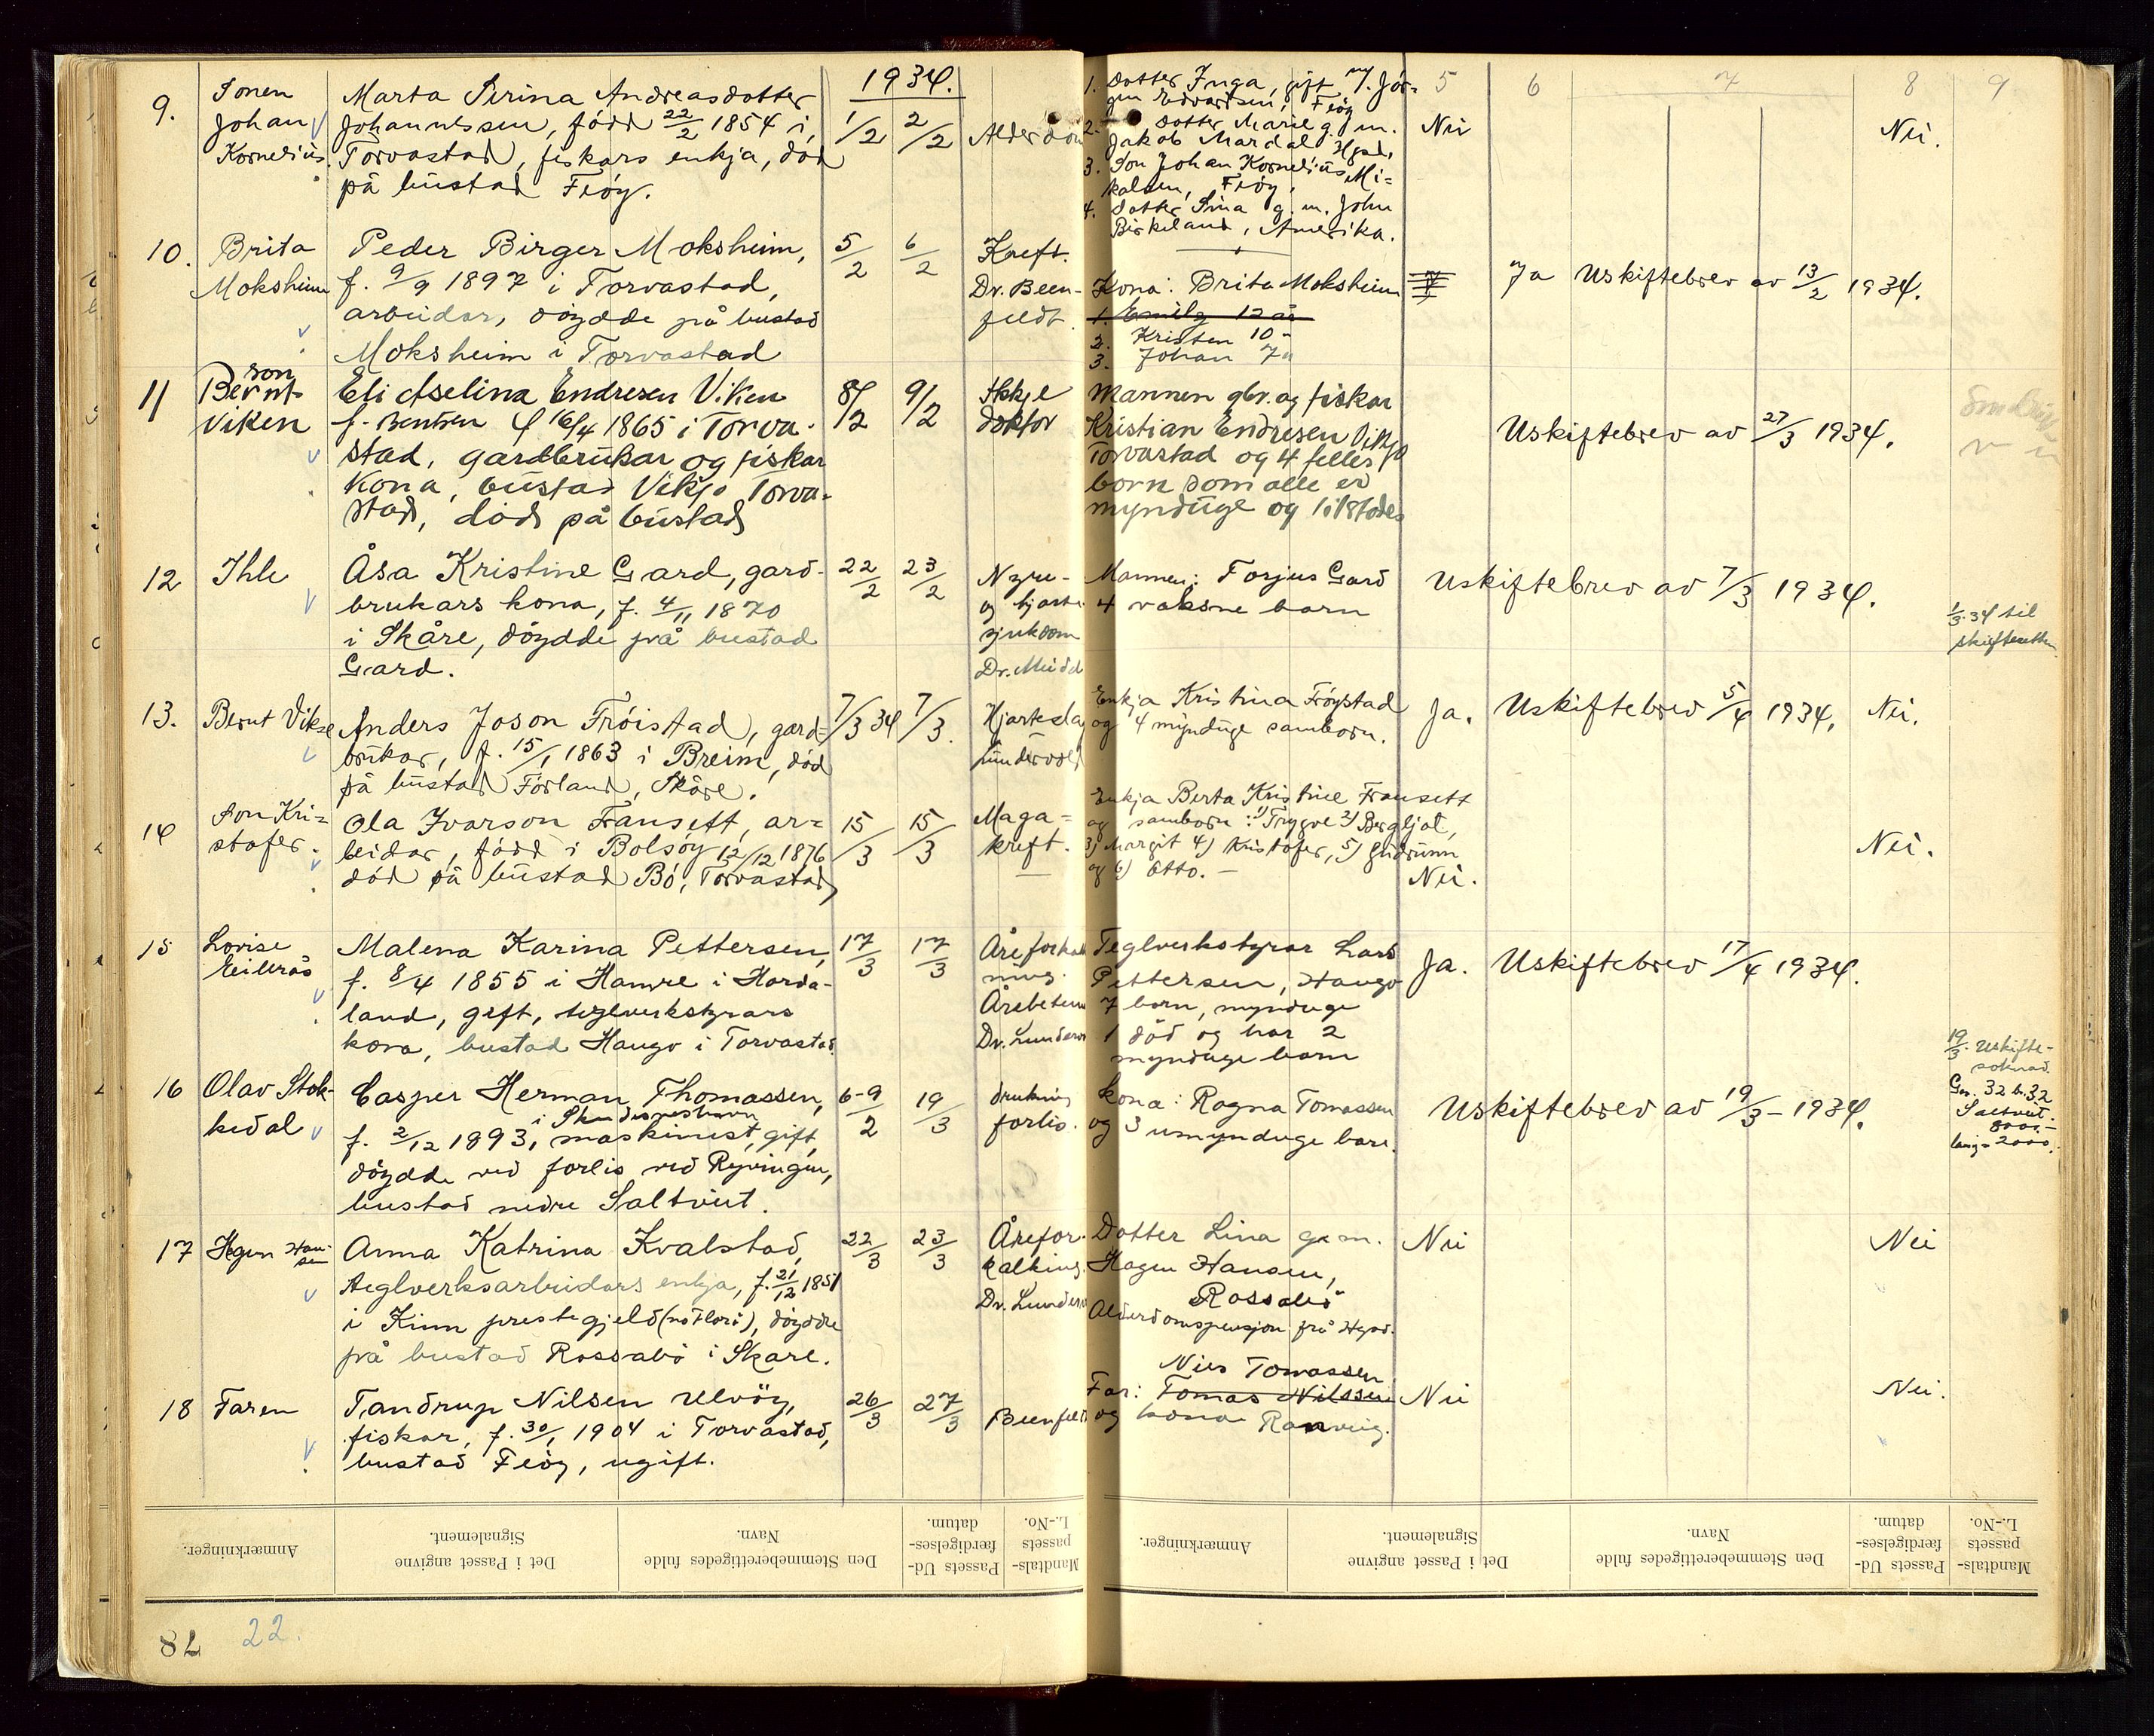 1934.
5 6 7 8 9
9.
Sonen
Johan
Kornelius.
Marta Serina Andreasdotter
Johannessen, fødd 22/2 1854 i
Torvastad, fiskars enkja, død
på bustad Feöy.
1/2 2/2
Alderdom
1. Dotter Inga, gift m/. Jör-
gen Edvardsen, Feöy
2. Dotter Marie g. m.
Jakob Mardal Hgsd,
3. Son Johan Kornelius Mi-
kalsen, Feöy,
4. Dotter Sina g. m. John
Birkeland, Amerika.
Nei
Nei.
10.
Brita
Moksheim
Peder Birger Moksheim,
f. 9/9 1897 i Torvastad,
arbeidar, döydde på bustad
Moksheim i Torvastad
5/2 6/2
Kreft.
Dr. Been-
feldt.
Kona: Brita Moksheim
1. Emily 12 år
2. Kristen 10 "
3. Johan 7 "
Ja Uskiftebrev av 13/2 1934.
11
son
Bernt
Viken
Eli Aselina Endresen Viken
f. Bentsen f 16/4 1865 i Torva-
stad, gardbrukar og fiskar
kona, bustad Vikjo Torva-
stad, död på bustad
8/2 9/2
doktor
Mannen gbr. og fiskar
Kristian Endresen Vikjo
Torvastad og 4 felles
born som alle er
mynduge og tilstades
Uskiftebrev av 27/3 1934.
12
Ihle
Åsa Kristine Gard, gard-
brukars kona, f. 4/11 1870
i Skåre, döydde på bustad
Gard.
22/2 23/2
Nyre-
og hjarte
sjukdom
Dr. Meidd
Mannen: Torjus Gard
4 vaksne barn
Uskiftebrev av 7/3 1934.
1/3. 34 til
skifteretten
13.
Bernt Vikse
Anders Joson Fröistad, gard-
brukar, f. 15/1 1863 i Breim, död
på bustad Förland, Skåre.
7/3 34 7/3.
Hjarteslag
Lundervold
Enkja Kristina Fröystad
og 4 mynduge samborn.
Ja. Uskiftebrev 5/4 1934. Nei.
14
Son Kri-
stofer.
Ola Ivarson Fransett, ar-
beidar, född i Bolsöy 12/12 1876
död på bustad Bö, Torvastad
15/3 15/3
Maga-
kreft.
Enkja Berta Kristine Fransett
og samborn: 1) Trygve 2) Bergljot,
3) Margit 4) Kristofer, 5) Gudrunn
og 6) Otto. -
Nei.
Nei.
15
Lovise
Eilerås
Malena Karina Pettersen,
f. 8/4 1855 i Hamre i Horda-
land, gift, teglverkstyrars
kona, bustad Haugo i Torvastad.
17/3 17/3
Åreforkalk
ning.
Årebeten
Dr. Lunderv
Teglverkstyrar Lars
Pettersen, Haugo
7 born, mynduge
1 död og har 2
mynduge barn
Ja. Uskiftebrev 17/4 1934.
16
Olav Stok-
kedal
Casper Herman Thomassen,
i Skudesneshavn
f. 2/12 1893, maskinist, gift,
döydde ved forlis ved Ryvingen,
bustad nedre Saltveit.
6-9/2 19/3
drukning
forlis.
Kona: Ragna Tomassen
og 3 umynduge barn.
Uskiftebrev av 19/3 - 1934.
19/3. Uskifte-
soknad.
Gn. 32 b. 32
Saltveit.
8000.-
2000.
17
Hagen Han-
sen
Anna Katrina Kvalstad,
teglverksarbeidars enkja, f. 21/12 1851
i Kinn prestegjeld (nö Florö), döydde
på bustad Rossabö i Skåre.
22/3 23/3
Årefor-
kalking.
Dr. Lunderv
Dotter Lina g. m.
Hagen Hansen,
Rossabö
Alderdomspensjon frå Hgsd.
Nei
Nei
18
Faren
Tandrup Nilsen Ulvöy,
fiskar, f. 30/1 1904 i Torvastad,
bustad Feöy, ugift.
26/3 27/3
Beenfeldt
Nies Tomassen
Far: Tomas Nilssen
og kona Ranveig.
Nei
Nei.
Anmærkninger.
Det i Passet angivne
Signalement.
Den Stemmeberettigedes fulde
Navn.
Passets Ud-
færdigelses-
datum.
Mandtals-
passets
L.-No.
Anmærkninger.
Det i Passet angivne
Signalement.
Den Stemmeberettigedes fulde
Navn.
Passets Ud-
færdigelses-
datum.
Mandtals-
passets
L.-No.
78
22.